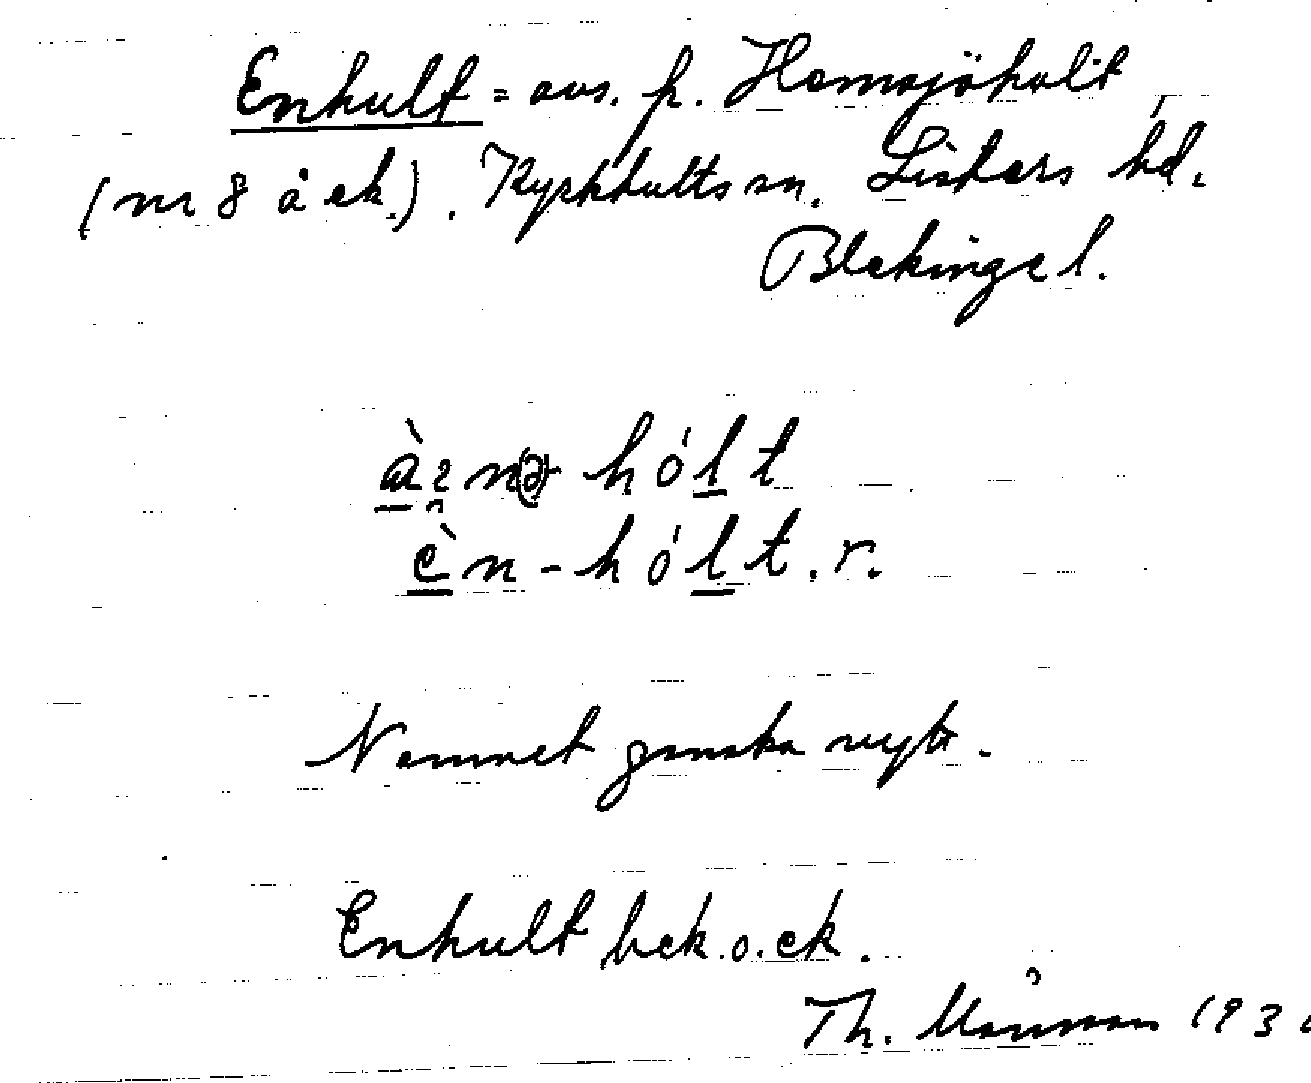 Enhult = avs. fr. Hemsjöholit,
(nr 8 å ek.). Kyrkhults sn. Listers hd.
Blekinge l.
hólt
èn-hólt. r.
Namnet ganska nytt.
Enhult bek. o. ek.
Th.